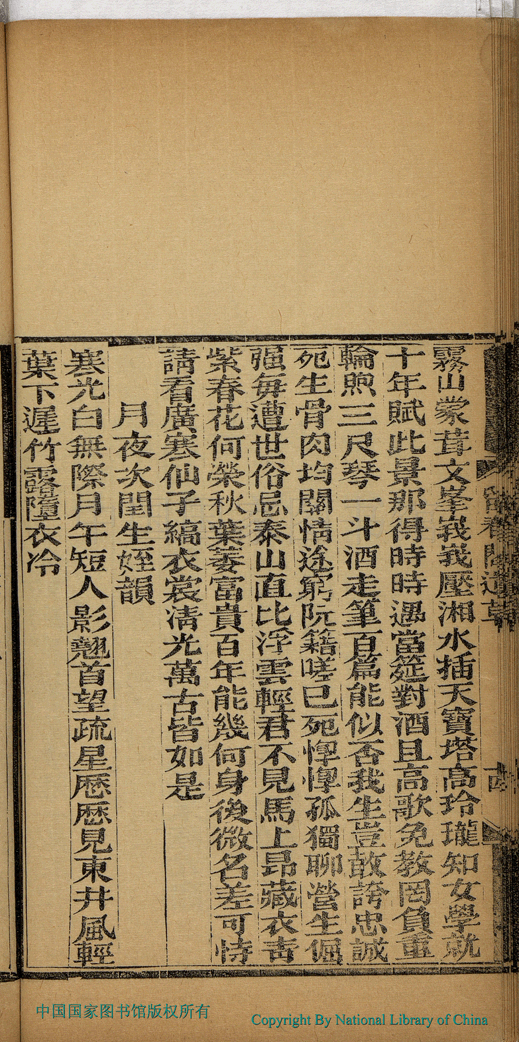 霧山蒙茸文峯峩峩壓湘水插天寶塔高玲瓏知女學就
十年賦此景那得時時遇當筵對酒且高歌免教罔負重
輪煦三尺琴一斗酒走筆百篇能似否我生豈敢誇忠誠
死生骨肉均關情途窮阮籍嗟已死惸惸孤獨聊營生倔
强每遭世俗忌泰山直比浮雲輕君不見馬上昂藏衣靑
紫春花何榮秋葉萎富貴百年能幾何身後微名差可恃
請看廣寒仙子縞衣裳淸光萬古皆如是
月夜次閏生姪韻
寒光白無際月午短人影翹首望疏星歷歷見東井風輕
葉下遲竹露墮衣冷
中国国家图书馆版权所有
Copyright By National Library of China